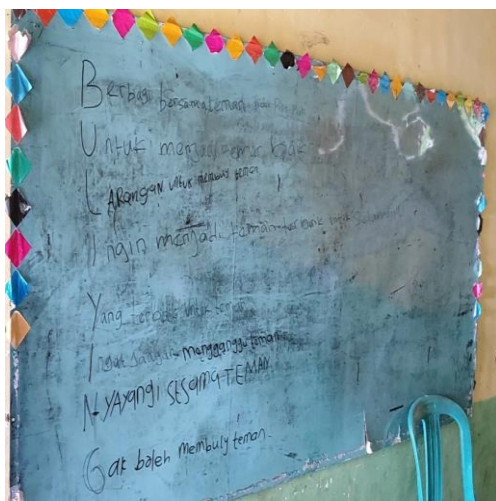 Berbagi bersama teman
Untuk menjadi teman baik
LARangan untuk membuly teman
Ingin menjadi teman terbaik
Yang terbaik untuk teman
Ingat jangan mengganggu teman
NyAyangi SESama TEMAN
Gak boleh membuly teman